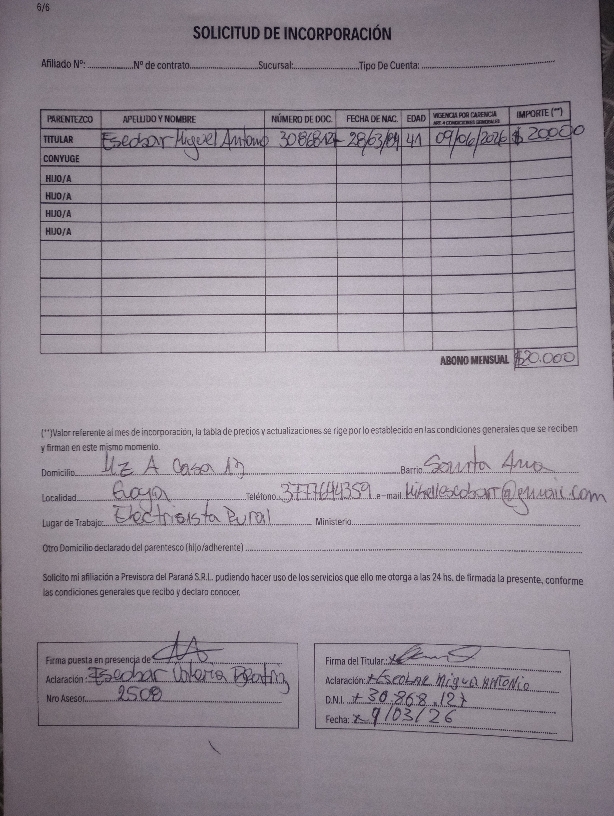 6/6
SOLICITUD DE INCORPORACIÓN
Afiliado Nº: Nº de contrato Sucursal: Tipo De Cuenta:
PARENTEZCO APELLIDO Y NOMBRE NÚMERO DE DOC. FECHA DE NAC. EDAD VIGENCIA POR CARENCIA IMPORTE (**)
TITULAR Escobar Miguel Antonio 30868127 28/03/84 41 09/06/2026 $20000
CONYUGE
HIJO/A
HIJO/A
HIJO/A
HIJO/A
ABONO MENSUAL $20.000
(**)Valor referente al mes de incorporación, la tabla de precios y actualizaciones se rige por lo establecido en las condiciones generales que se reciben
y firman en este mismo momento.
Domicilio Mz A Casa 13 Barrio Santa Ana
Localidad Goya Teléfono 3777644359 e-mail @gmail.com
Lugar de Trabajo: Electrisista Rural Ministerio
Otro Domicilio declarado del parentesco (hijo/adherente)
Solicito mi afiliación a Previsora del Paraná S.R.L. pudiendo hacer uso de los servicios que ello me otorga a las 24 hs. de firmada la presente, conforme
las condiciones generales que recibo y declaro conocer.
Firma puesta en presencia de
Aclaración: Escobar Valeria Beatriz
Nro Asesor 2508
Firma del Titular: x
Aclaración: x Escobar Miguel Antonio
D.N.I. x 30.868.127
Fecha: x 9/03/26